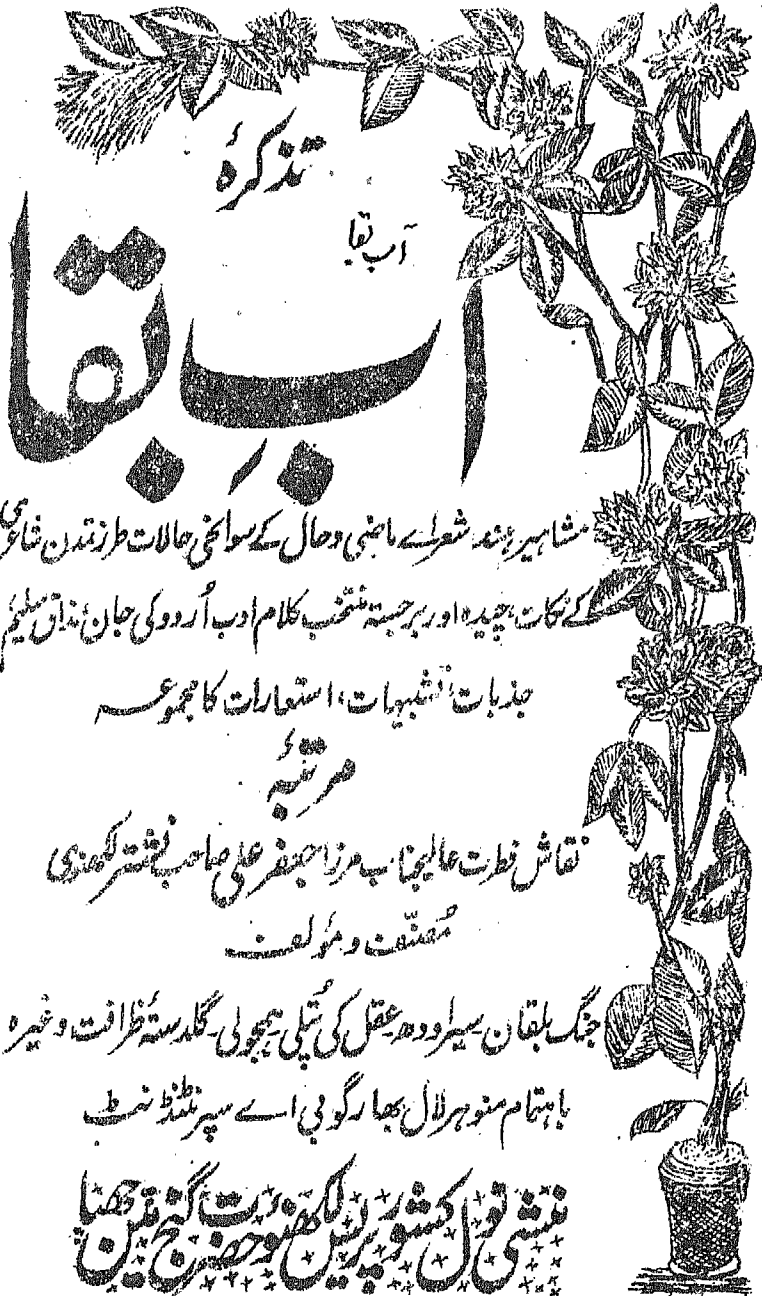 تذکرۂ
آب بقا
آب بقا
مشاہیر ہند شعراے ماضی و حال کے سوانحی حالات طرز تمدن شاعری
کے نکات چیدہ اور برجستہ منتخب کلام ادب اُردو کی جان مذاق سلیم
جذبات، تشبیہات، استعارات کا مجموعہ
مرتبۂ
نقاش فطرت عالیجناب مرزا جعفر علی صاحب نشتر لکھنوی
مُصنّف و مؤلف
جنگ بلقان سیر اودھ عقل کی پُتلی ہمجولی گلدستۂ ظرافت وغیرہ
باہتمام منوہر لال بھارگو بی اے سپرنٹنڈنٹ
منشی نول کشور پریس لکھنؤ حضرت گنج میں چھپا